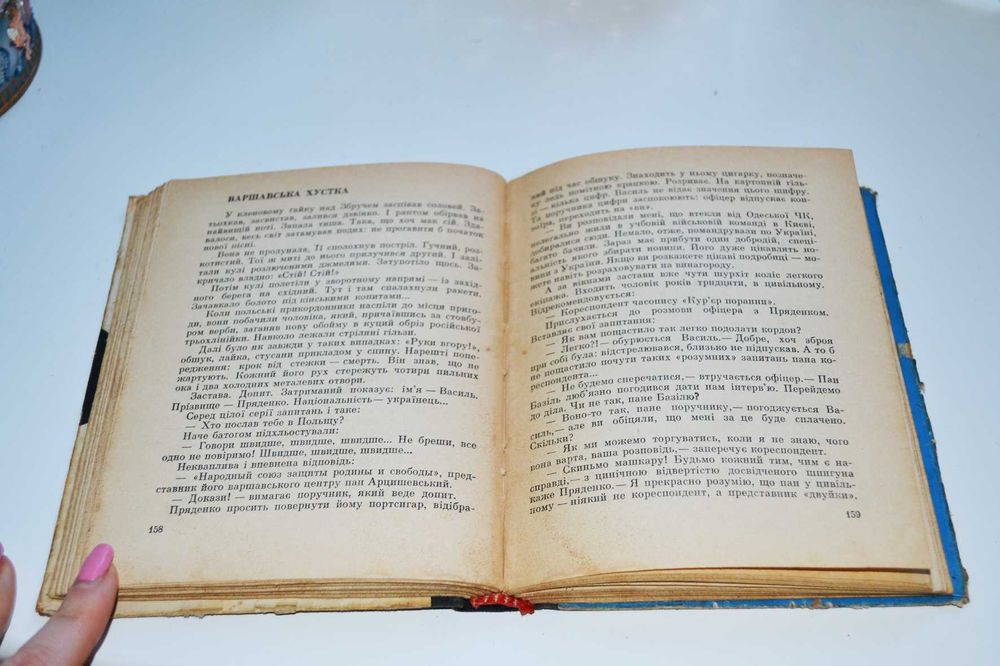 ВАРШАВСЬКА ХУСТКА
У кленовому гайку над Збручем заспівав соловей. За-
тьохкав, засвистав, залився дзвінко. І раптом обірвав на
найвищій ноті. Запала тиша. Така, що хоч мак сій. Зда-
валося, весь світ затамував подих: не прогавити б початок
нової пісні.
Вона не пролунала. Її сполохнув постріл. Гучний, роз-
котистий. Тої ж миті до нього прилучився другий. І залі-
тали кулі розлюченими джмелями. Затупотіло щось. За-
кричало владно: «Стій! Стій!»
Потім кулі полетіли у зворотному напрямі — із захід-
ного берега на східний. Тут і там спалахнули ракети.
Зачавкало болото під кінськими копитами...
Коли польські прикордонники наспіли до місця приго-
ди, вони побачили чоловіка, який, причаївшись за стовбу-
ром верби, заганяв нову обойму в куций обріз російської
трьохлінійки. Навколо лежали стріляні гільзи.
Далі було як завжди у таких випадках: «Руки вгору!»,
обшук, лайка, стусани прикладом у спину. Нарешті попе-
редження: крок від стежки — смерть. Він знав, що не
жартують. Кожний його рух стережуть чотири пильних
ока і два холодних металевих отвори.
Застава. Допит. Затриманий показує: ім'я — Василь.
Прізвище — Пряденко. Національність — українець...
Серед цілої серії запитань і таке:
— Хто послав тебе в Польщу?
Наче батогом підхльостували:
— Говори швидше, швидше, швидше... Не бреши, все
одно не повіримо! Швидше, швидше, швидше...
Некваплива і впевнена відповідь:
— «Народный союз защиты родины и свободы», пред-
ставник його варшавського центру пан Арцишевський.
— Докази! — вимагає поручник, який веде допит.
Пряденко просить повернути йому портсигар, відібра-
158
ний під час обшуку. Знаходить у ньому цигарку, позначе-
ну ледь помітною крапкою. Розриває. На картопній гіль-
зі — кілька цифр. Василь не відає значення цього шифру.
Та поручника цифри заспокоюють: офіцер відпускає кон-
воїра, переходить на «ви».
— Ви розповідали мені, що втекли від Одеської ЧК,
нелегально жили в учбовій військовій команді в Києві,
добиралися сюди. Немало, отже, помандрували по Україні,
багато бачили. Зараз має прибути один добродій, спеці-
альність якого збирати новини. Його дуже цікавлять но-
вини з України. Якщо ви розкажете цікаві подробиці — мо-
жете навіть розраховувати на винагороду.
А за вікнами застави вже чути шурхіт коліс легкого
екіпажа. Входить чоловік років тридцяти, в цивільному.
Відрекомендовується:
— Кореспондент часопису «Кур'єр поранни».
Прислухається до розмови офіцера з Пряденком.
Вставляє свої запитання:
— Як вам пощастило так легко подолати кордон?
— Легко?! — обурюється Василь.— Добре, хоч зброя
при собі була: відстрелювався, близько не підпускав. А то б
не пощастило почути таких «розумних» запитань пана ко-
респондента...
— Не будемо сперечатися,— втручається офіцер.— Пан
Базіль люб'язно погодився дати нам інтерв'ю. Перейдемо
до діла. Чи не так, пане Базілю?
— Воно-то так, пане поручнику,— погоджується Ва-
силь,— але ви обіцяли, що мені за це буде сплачено.
Скільки?
— Як ми можемо торгуватись, коли я не знаю, чого
вона варта, ваша розповідь,— заперечує кореспондент.
— Скиньмо машкару! Будьмо кожний тим, чим є на-
справді,— з цинічною відвертістю досвідченого шпигуна
каже Пряденко.— Я прекрасно розумію, що пан у цивіль-
ному — ніякий не кореспондент, а представник «двуйки»,
159